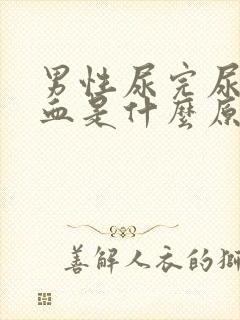 男性尿完尿
血是什麼原
善解人衣的獅